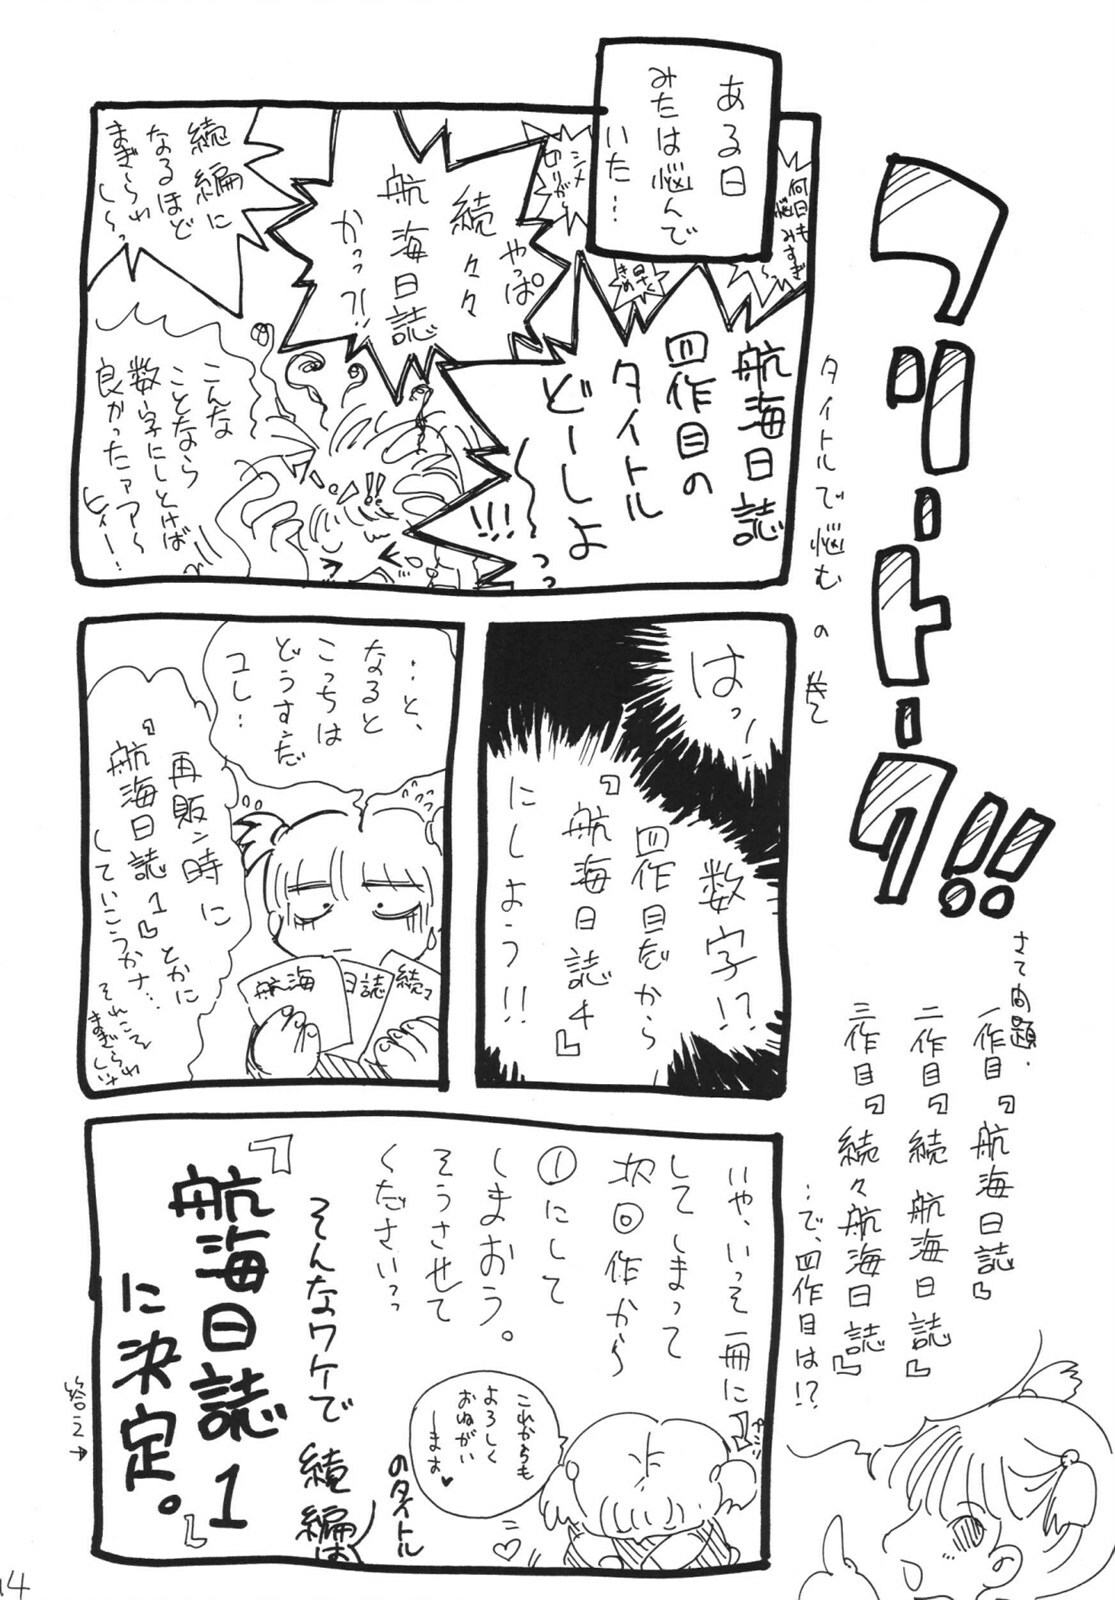 フリートーク!!
タイトルで悩むの巻
さて問題.
一作目『航海日誌』
二作目『続 航海日誌』
三作目『続々航海日誌』
…で、四作目は!?
ある日
みたは悩んで
いた…
何日も
悩みすぎ
〜っ
シメ
切りが〜
早く
きめ
航海日誌
四作目の
タイトル
どーしよ
〜〜っっ
!!!
やっぱ
続々々
航海日誌
かっ?!
続編に
なるほど
まぎらわ
し〜っ
こんな
ことなら
数字にしとけば
良かったァァァ〜
ヒィー!
はっ
数字!?
四作目だから
『航海日誌4』
にしよう!!
…と、
なると
こっちは
どうすんだ
コレ…
再販ン時に
『航海日誌1』とかに
していこうかナ…
それこそ
まぎらわ
しいナ
航海
日誌
続々
いや、いっそ一冊に
してしまって
次回作から
①にして
しまおう。
そうさせて
くださいっっ
これからも
よろしく
おねがい
します♥
そんなワケで 続編は
のタイトル
『航海日誌1』
に決定。
14